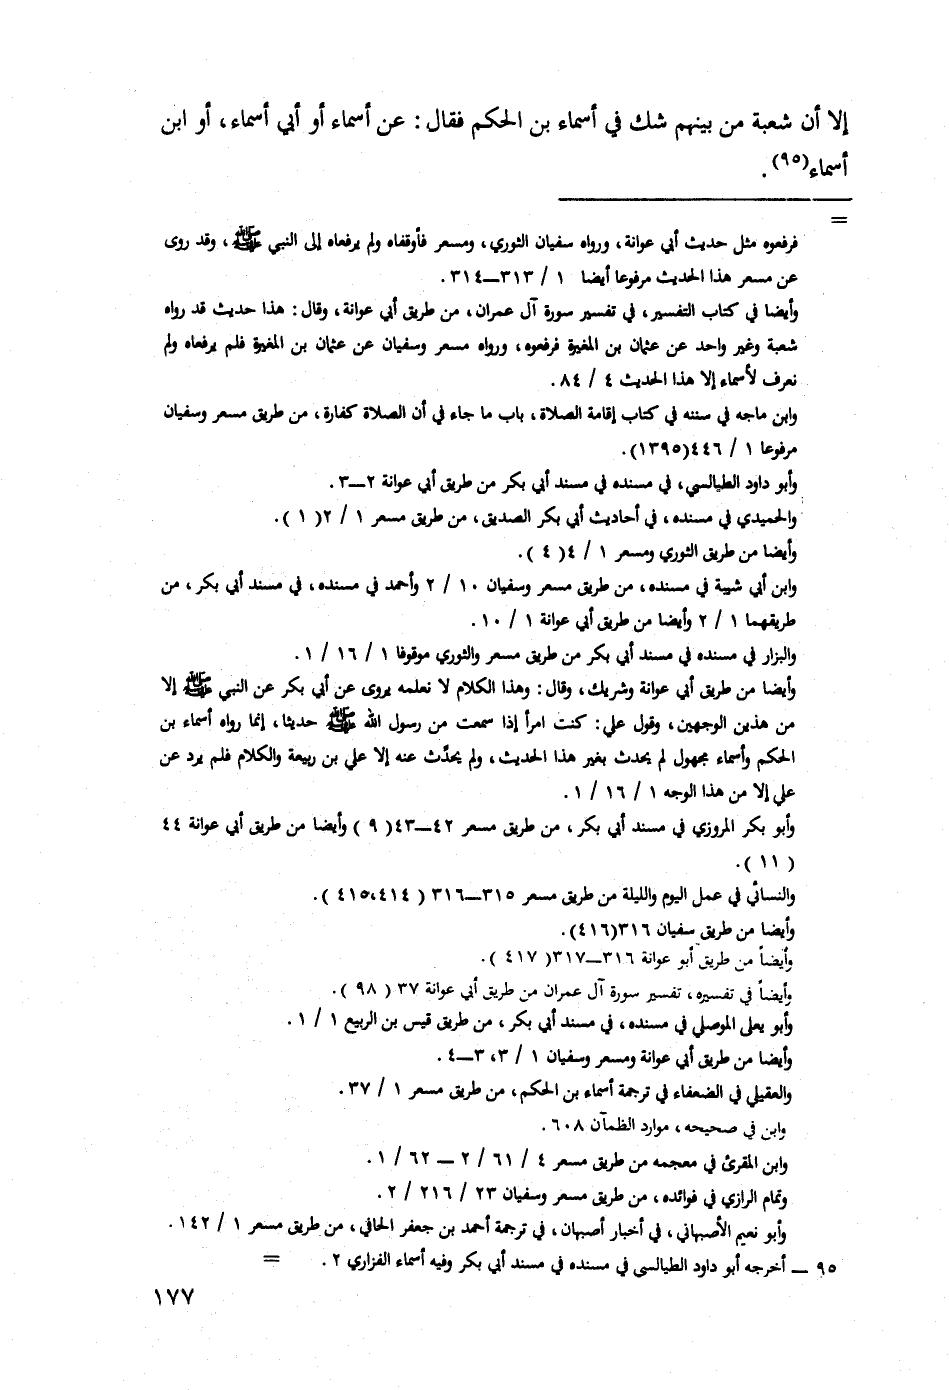 إلا أن شعبة من بينهم شك في أسماء بن الحكم فقال : عن أسماء أو أبي أسماء ، أو ابن
أسماء(٩٥) .
=
فرفعوه مثل حديث أبي عوانة ، ورواه سفيان الثوري ، ومسعر فأوقفاه ولم يرفعاه إلى النبي ﷺ ، وقد روى
عن مسعر هذا الحديث مرفوعا أيضا ١ / ٣١٣ــ٣١٤ .
وأيضا في كتاب التفسير ، في تفسير سورة آل عمران ، من طريق أبي عوانة ، وقال : هذا حديث قد رواه
شعبة وغير واحد عن عثمان بن المغيرة فرفعوه ، ورواه مسعر وسفيان عن عثمان بن المغيرة فلم يرفعاه ولم
نعرف لأسماء إلا هذا الحديث ٤ / ٨٤ .
وابن ماجه في سننه في كتاب إقامة الصلاة ، باب ما جاء في أن الصلاة كفارة ، من طريق مسعر وسفيان
مرفوعا ١ / ٤٤٦(١٣٩٥) .
وأبو داود الطيالسي ، في مسنده في مسند أبي بكر من طريق أبي عوانة ٢ــ٣ .
والحميدي في مسنده ، في أحاديث أبي بكر الصديق ، من طريق مسعر ١ / ٢( ١ ) .
وأيضا من طريق الثوري ومسعر ١ / ٤( ٤ ) .
وابن أبي شيبة في مسنده ، من طريق مسعر وسفيان ١٠ / ٢ وأحمد في مسنده ، في مسند أبي بكر ، من
طريقهما ١ / ٢ وأيضا من طريق أبي عوانة ١ / ١٠ .
والبزار في مسنده في مسند أبي بكر من طريق مسعر والثوري موقوفا ١ / ١٦ / ١ .
وأيضا من طريق أبي عوانة وشريك ، وقال : وهذا الكلام لا نعلمه يروى عن أبي بكر عن النبي ﷺ إلا
من هذين الوجهين ، وقول علي : كنت امرأ إذا سمعت من رسول الله ﷺ حديثا ، إنما رواه أسماء بن
الحكم وأسماء مجهول لم يحدث بغير هذا الحديث ، ولم يحدّث عنه إلا علي بن ربيعة والكلام فلم يرد عن
علي إلا من هذا الوجه ١ / ١٦ / ١ .
وأبو بكر المروزي في مسند أبي بكر ، من طريق مسعر ٤٢ــ٤٣( ٩ ) وأيضا من طريق أبي عوانة ٤٤
( ١١ ) .
والنسائي في عمل اليوم والليلة من طريق مسعر ٣١٥ــ٣١٦ ( ٤١٤،٤١٥ ) .
وأيضا من طريق سفيان ٣١٦(٤١٦) .
وأيضاً من طريق أبو عوانة ٣١٦ــ٣١٧( ٤١٧ ) .
وأيضاً في تفسيره ، تفسير سورة آل عمران من طريق أبي عوانة ٣٧ ( ٩٨ ) .
وأبو يعلى الموصلي في مسنده ، في مسند أبي بكر ، من طريق قيس بن الربيع ١ / ١ .
وأيضا من طريق أبي عوانة ومسعر وسفيان ١ / ٣، ٣ــ٤ .
والعقيلي في الضعفاء في ترجمة أسماء بن الحكم ، من طريق مسعر ١ / ٣٧ .
وابن في صحيحه ، موارد الظمآن ٦٠٨ .
وابن المقرئ في معجمه من طريق مسعر ٤ / ٦١ / ٢ ــ ٦٢ / ١ .
وتمام الرازي في فوائده ، من طريق مسعر وسفيان ٢٣ / ٢١٦ / ٢ .
وأبو نعيم الأصبهاني ، في أخبار أصبهان ، في ترجمة أحمد بن جعفر الحافي ، من طريق مسعر ١ / ١٤٢ .
٩٥ ــ أخرجه أبو داود الطيالسي في مسنده في مسند أبي بكر وفيه أسماء الفزاري ٢ . =
١٧٧